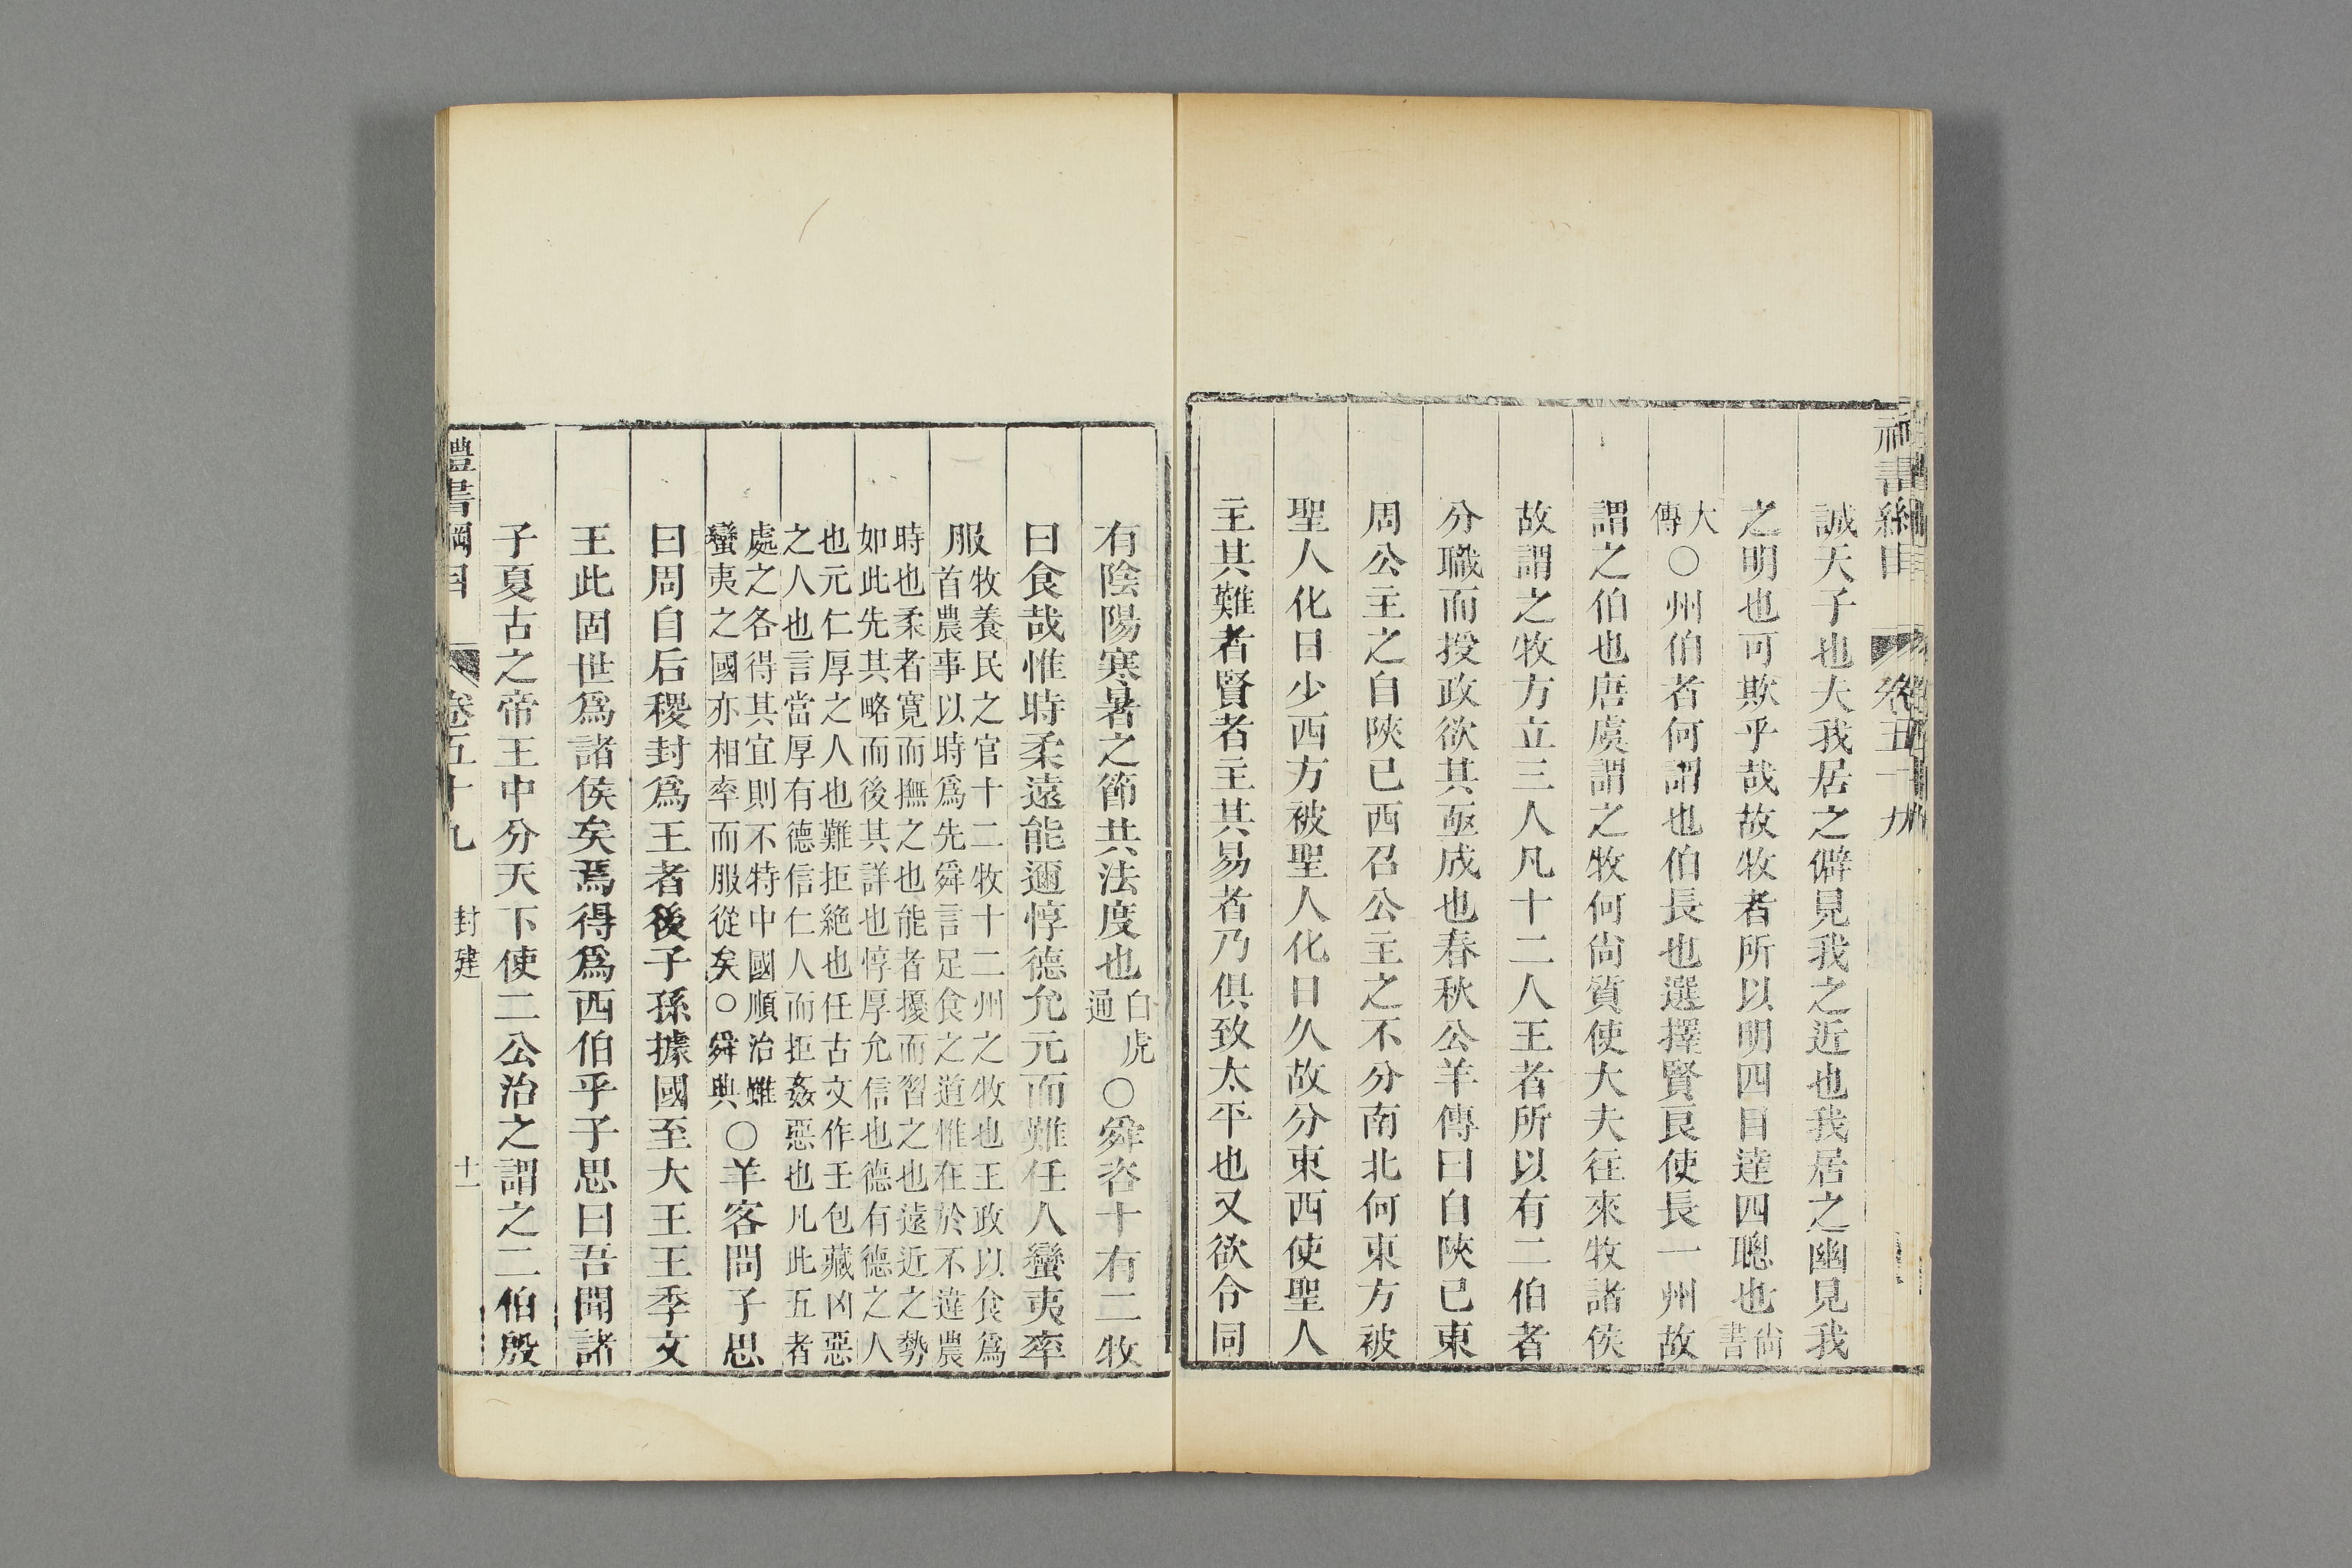 禮書綱目 卷五十九
誠天子也夫我居之僻見我之近也我居之幽見我
之明也可欺乎哉故牧者所以明四目達四聰也尚書
大傳○州伯者何謂也伯長也選擇賢良使長一州故
謂之伯也唐虞謂之牧何尚質使大夫往來牧諸侯
故謂之牧方立三人凡十二人王者所以有二伯者
分職而授政欲其亟成也春秋公羊傳曰自陝已東
周公主之自陝已西召公主之不分南北何東方被
聖人化日少西方被聖人化日久故分東西使聖人
主其難者賢者主其易者乃俱致太平也又欲令同
有陰陽寒暑之節共法度也白虎通○舜咨十有二牧
曰食哉惟時柔遠能邇惇德允元而難任人蠻夷率
服牧養民之官十二牧十二州之牧也王政以食爲
首農事以時爲先舜言足食之道惟在於不違農
時也柔者寛而撫之也能者擾而習之也遠近之勢
如此先其略而後其詳也惇厚允信也德有德之人
也元仁厚之人也難拒絶也任古文作壬包藏凶惡
之人也言當厚有德信仁人而拒姦惡也凡此五者
處之各得其宜則不特中國順治雖
蠻夷之國亦相率而服從矣○舜典○羊客問子思
曰周自后稷封爲王者後子孫據國至大王王季文
王此固世爲諸侯矣焉得爲西伯乎子思曰吾聞諸
子夏古之帝王中分天下使二公治之謂之二伯殷
禮書綱目 卷五十九 封建 十一